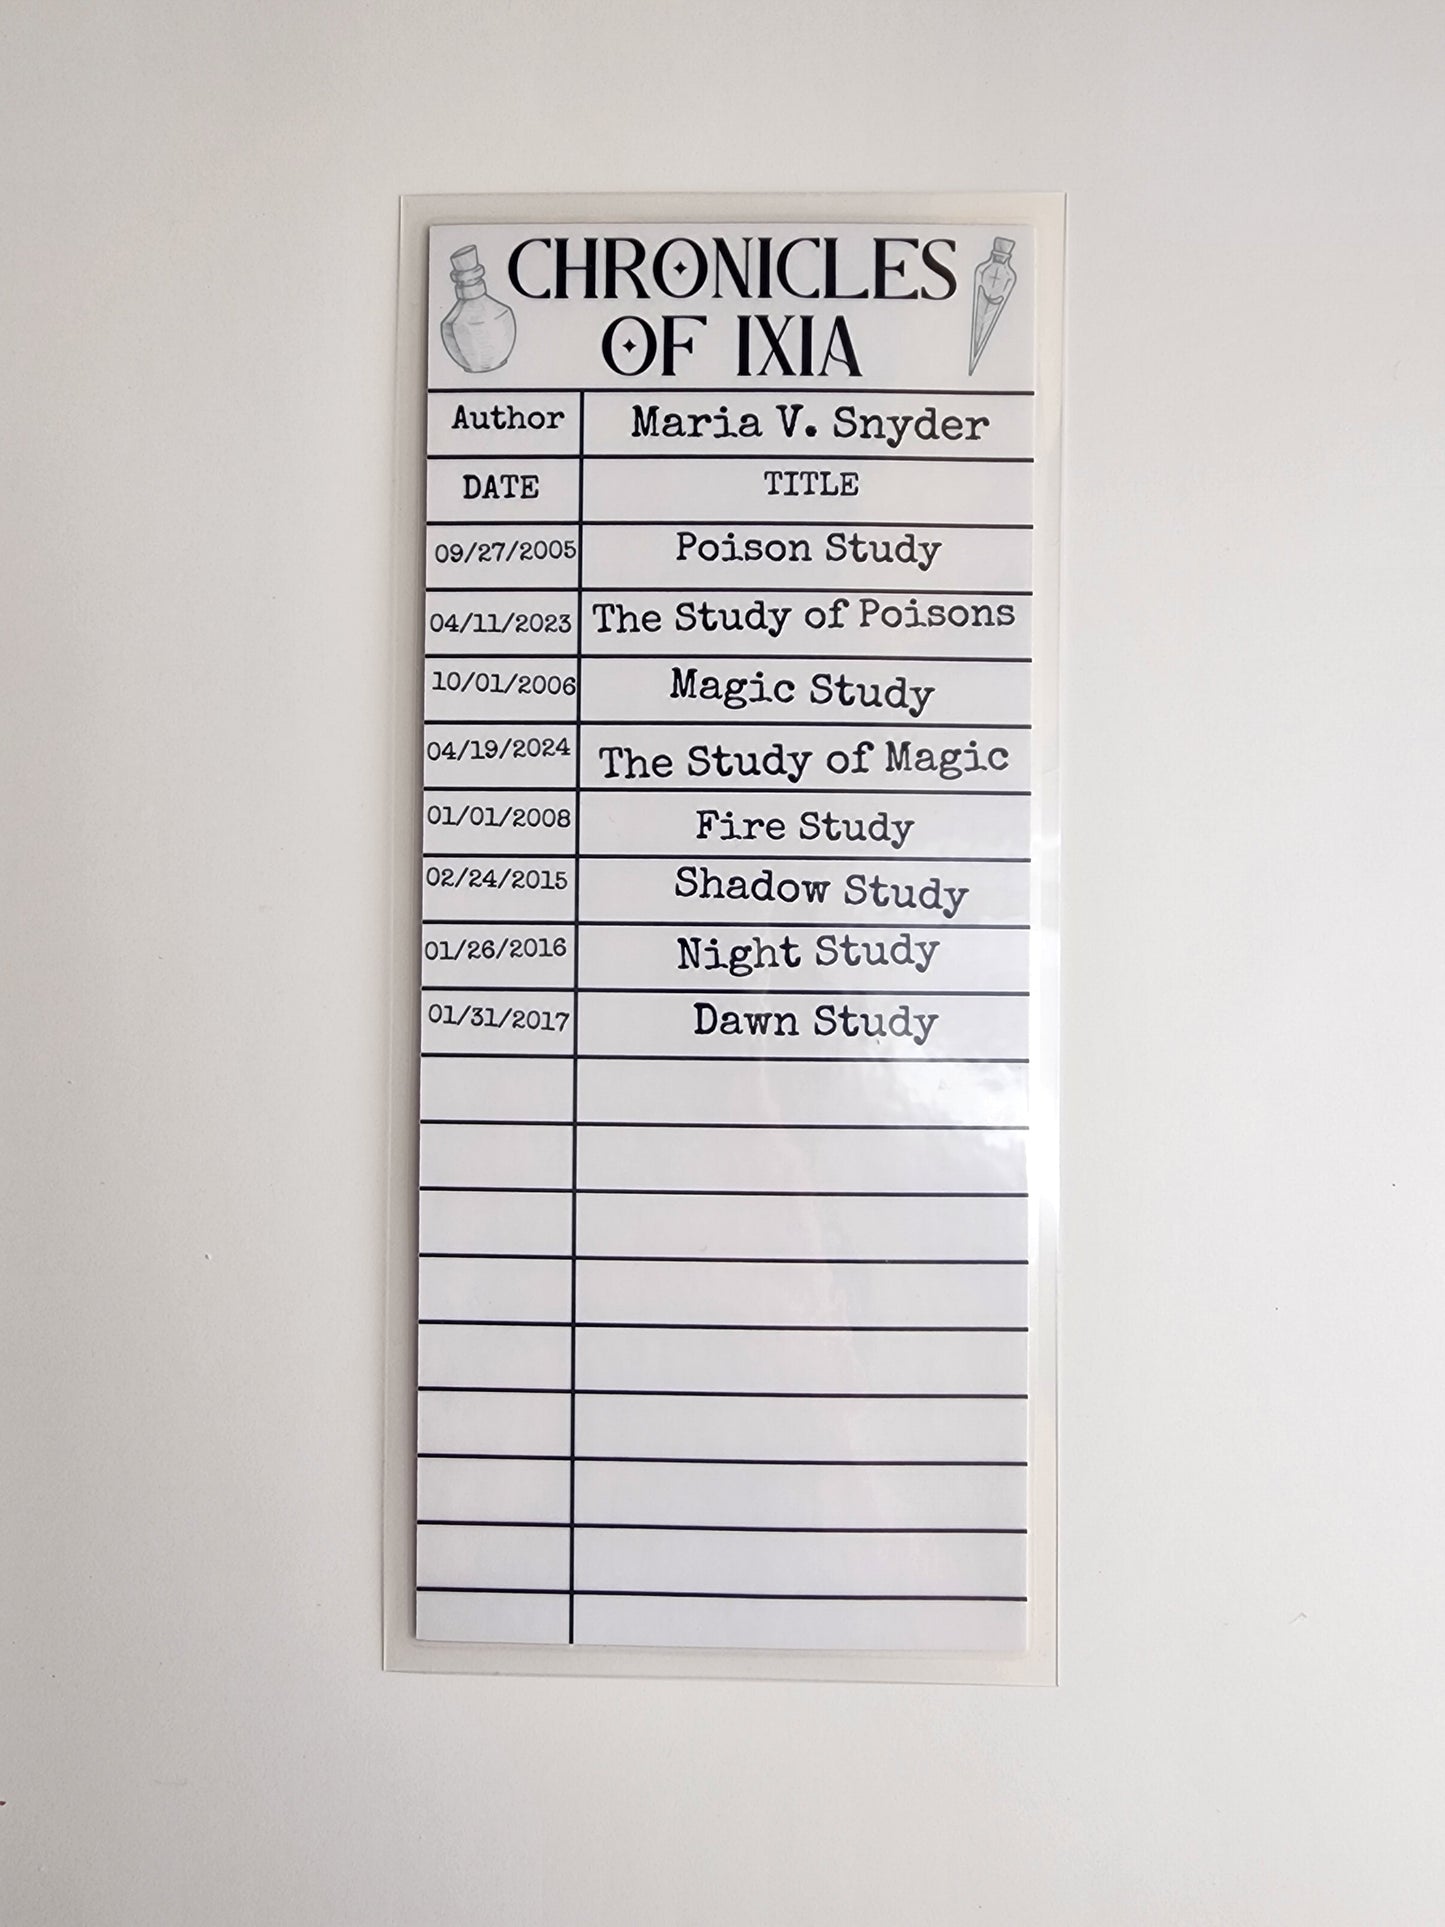 CHRONICLES
OF IXIA
Author Maria V. Snyder
DATE TITLE
09/27/2005 Poison Study
04/11/2023 The Study of Poisons
10/01/2006 Magic Study
04/19/2024 The Study of Magic
01/01/2008 Fire Study
02/24/2015 Shadow Study
01/26/2016 Night Study
01/31/2017 Dawn Study